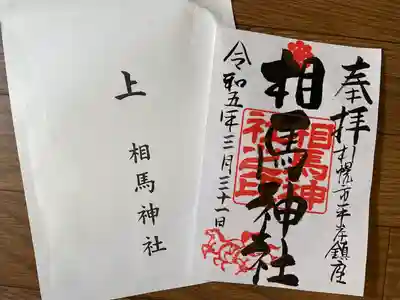 奉拝
札幌市平岸鎮座
相馬神社
相馬神
社之印
令和五年三月三十一日
上
相馬神社